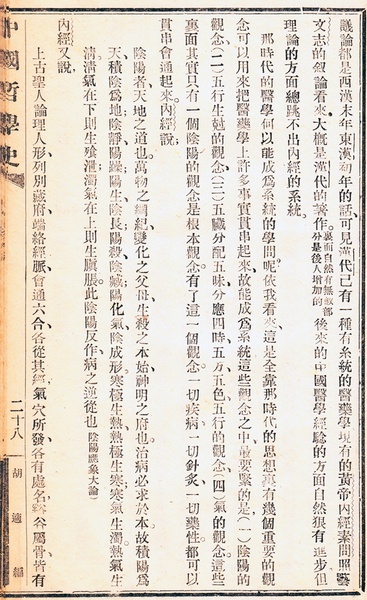 議論都是西漢末年東漢初年的話、可見漢代已有一種有系統的醫藥學現有的黃帝內經素問照藝
文志的叙論看來大槪是漢代的著作。裏面自然有無數部分是後人增加的後來的中國醫學經驗的方面自然狠有進步但
理論的方面總跳不出內經的系統。
那時代的醫學何以能成爲系統的學問呢依我看來、這是全靠那時代的思想眞有幾個重要的觀
念可以用來把醫藥學上許多事實貫串起來、故能成爲系統這些觀念之中、最要緊的是(一)陰陽的
觀念(二)五行生尅的觀念、(三)五臟分配五味分應四時、五方、五色五行的觀念、(四)氣的觀念。這些
裏面其實只有一個陰陽的觀念是根本觀念。有了這一個觀念、一切疾病、一切針灸、一切藥性都可以
貫串會通起來。內經說、
陰陽者、天地之道也。萬物之綱紀、變化之父母、生殺之本始神明之府也。治病必求於本。故積陽爲
天、積陰爲地、陰靜陽躁、陽生陰長、陽殺陰藏、陽化氣陰成形、寒極生熱、熱極生寒、寒氣生濁、熱氣生
清、清氣在下則生飧泄、濁氣在上則生䐜脹。此陰陽反作、病之逆從也(陰陽應象大論)
內經又說、
上古聖人論理人形列別臟府、端絡經脈、會通六合、各從其經、氣穴所發、各有處名、谿谷屬骨、皆有
中國哲學史
二十八
胡適編